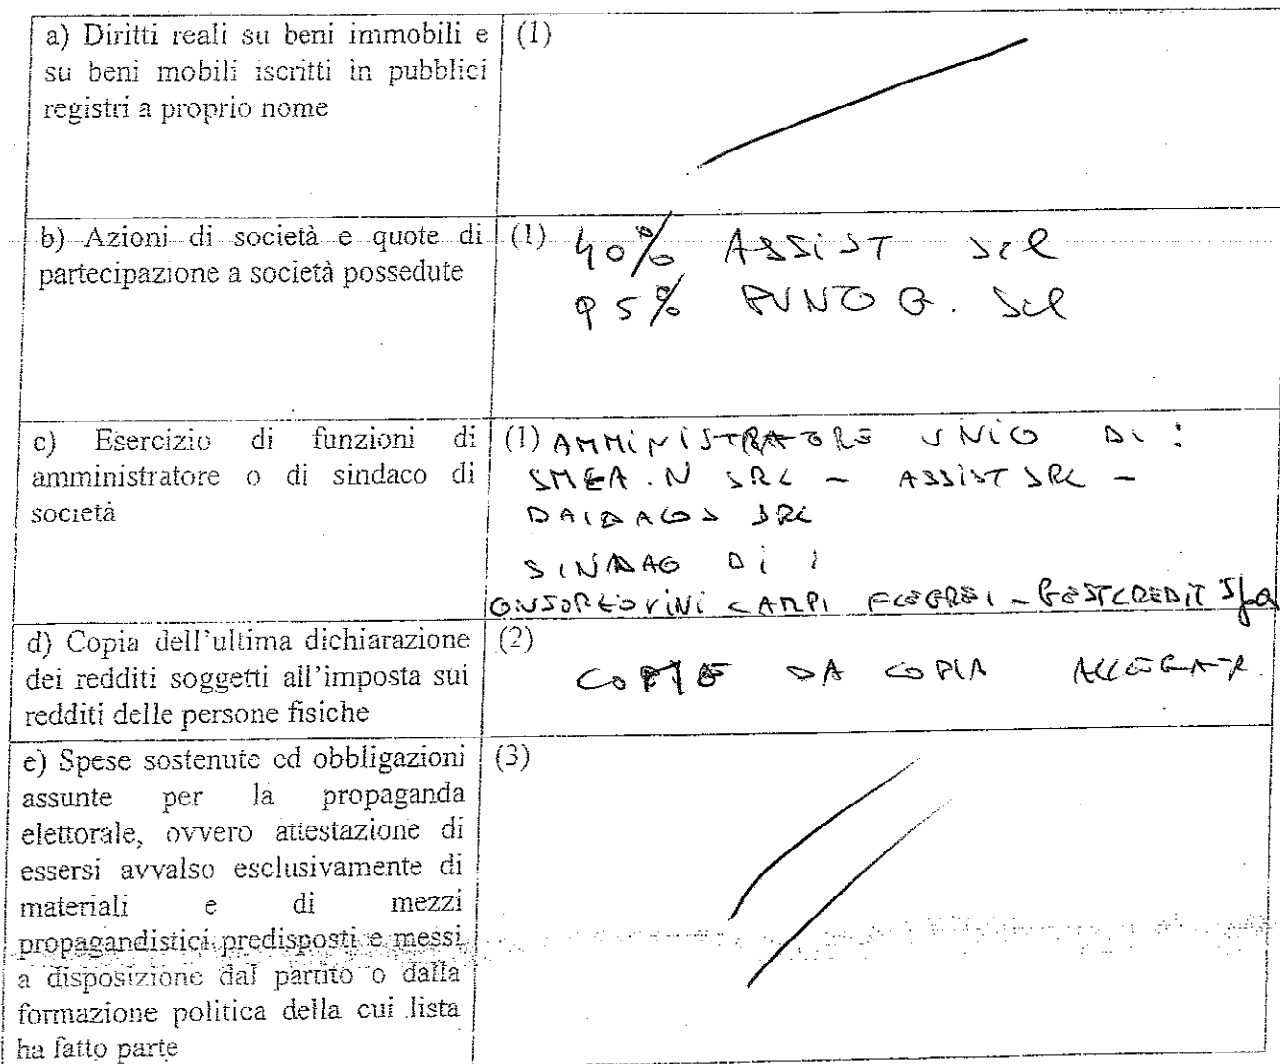 a) Diritti reali su beni immobili e
su beni mobili iscritti in pubblici
registri a proprio nome
(1)
b) Azioni di società e quote di
partecipazione a società possedute
(1) 40% ASSIST SRL
95% PUNTO G. SRL
c) Esercizio di funzioni di
amministratore o di sindaco di
società
(1) AMMINISTRATORE UNICO DI:
SMEA.N SRL - ASSIST SRL -
DAIDALOS SRL
SINDACO DI:
VINI CAMPI FLEGREI - GESTCREDIT SpA
d) Copia dell'ultima dichiarazione
dei redditi soggetti all'imposta sui
redditi delle persone fisiche
(2)
COME DA COPIA ALLEGATA
e) Spese sostenute ed obbligazioni
assunte per la propaganda
elettorale, ovvero attestazione di
essersi avvalso esclusivamente di
materiali e di mezzi
propagandistici predisposti e messi
a disposizione dal partito o dalla
formazione politica della cui lista
ha fatto parte
(3)